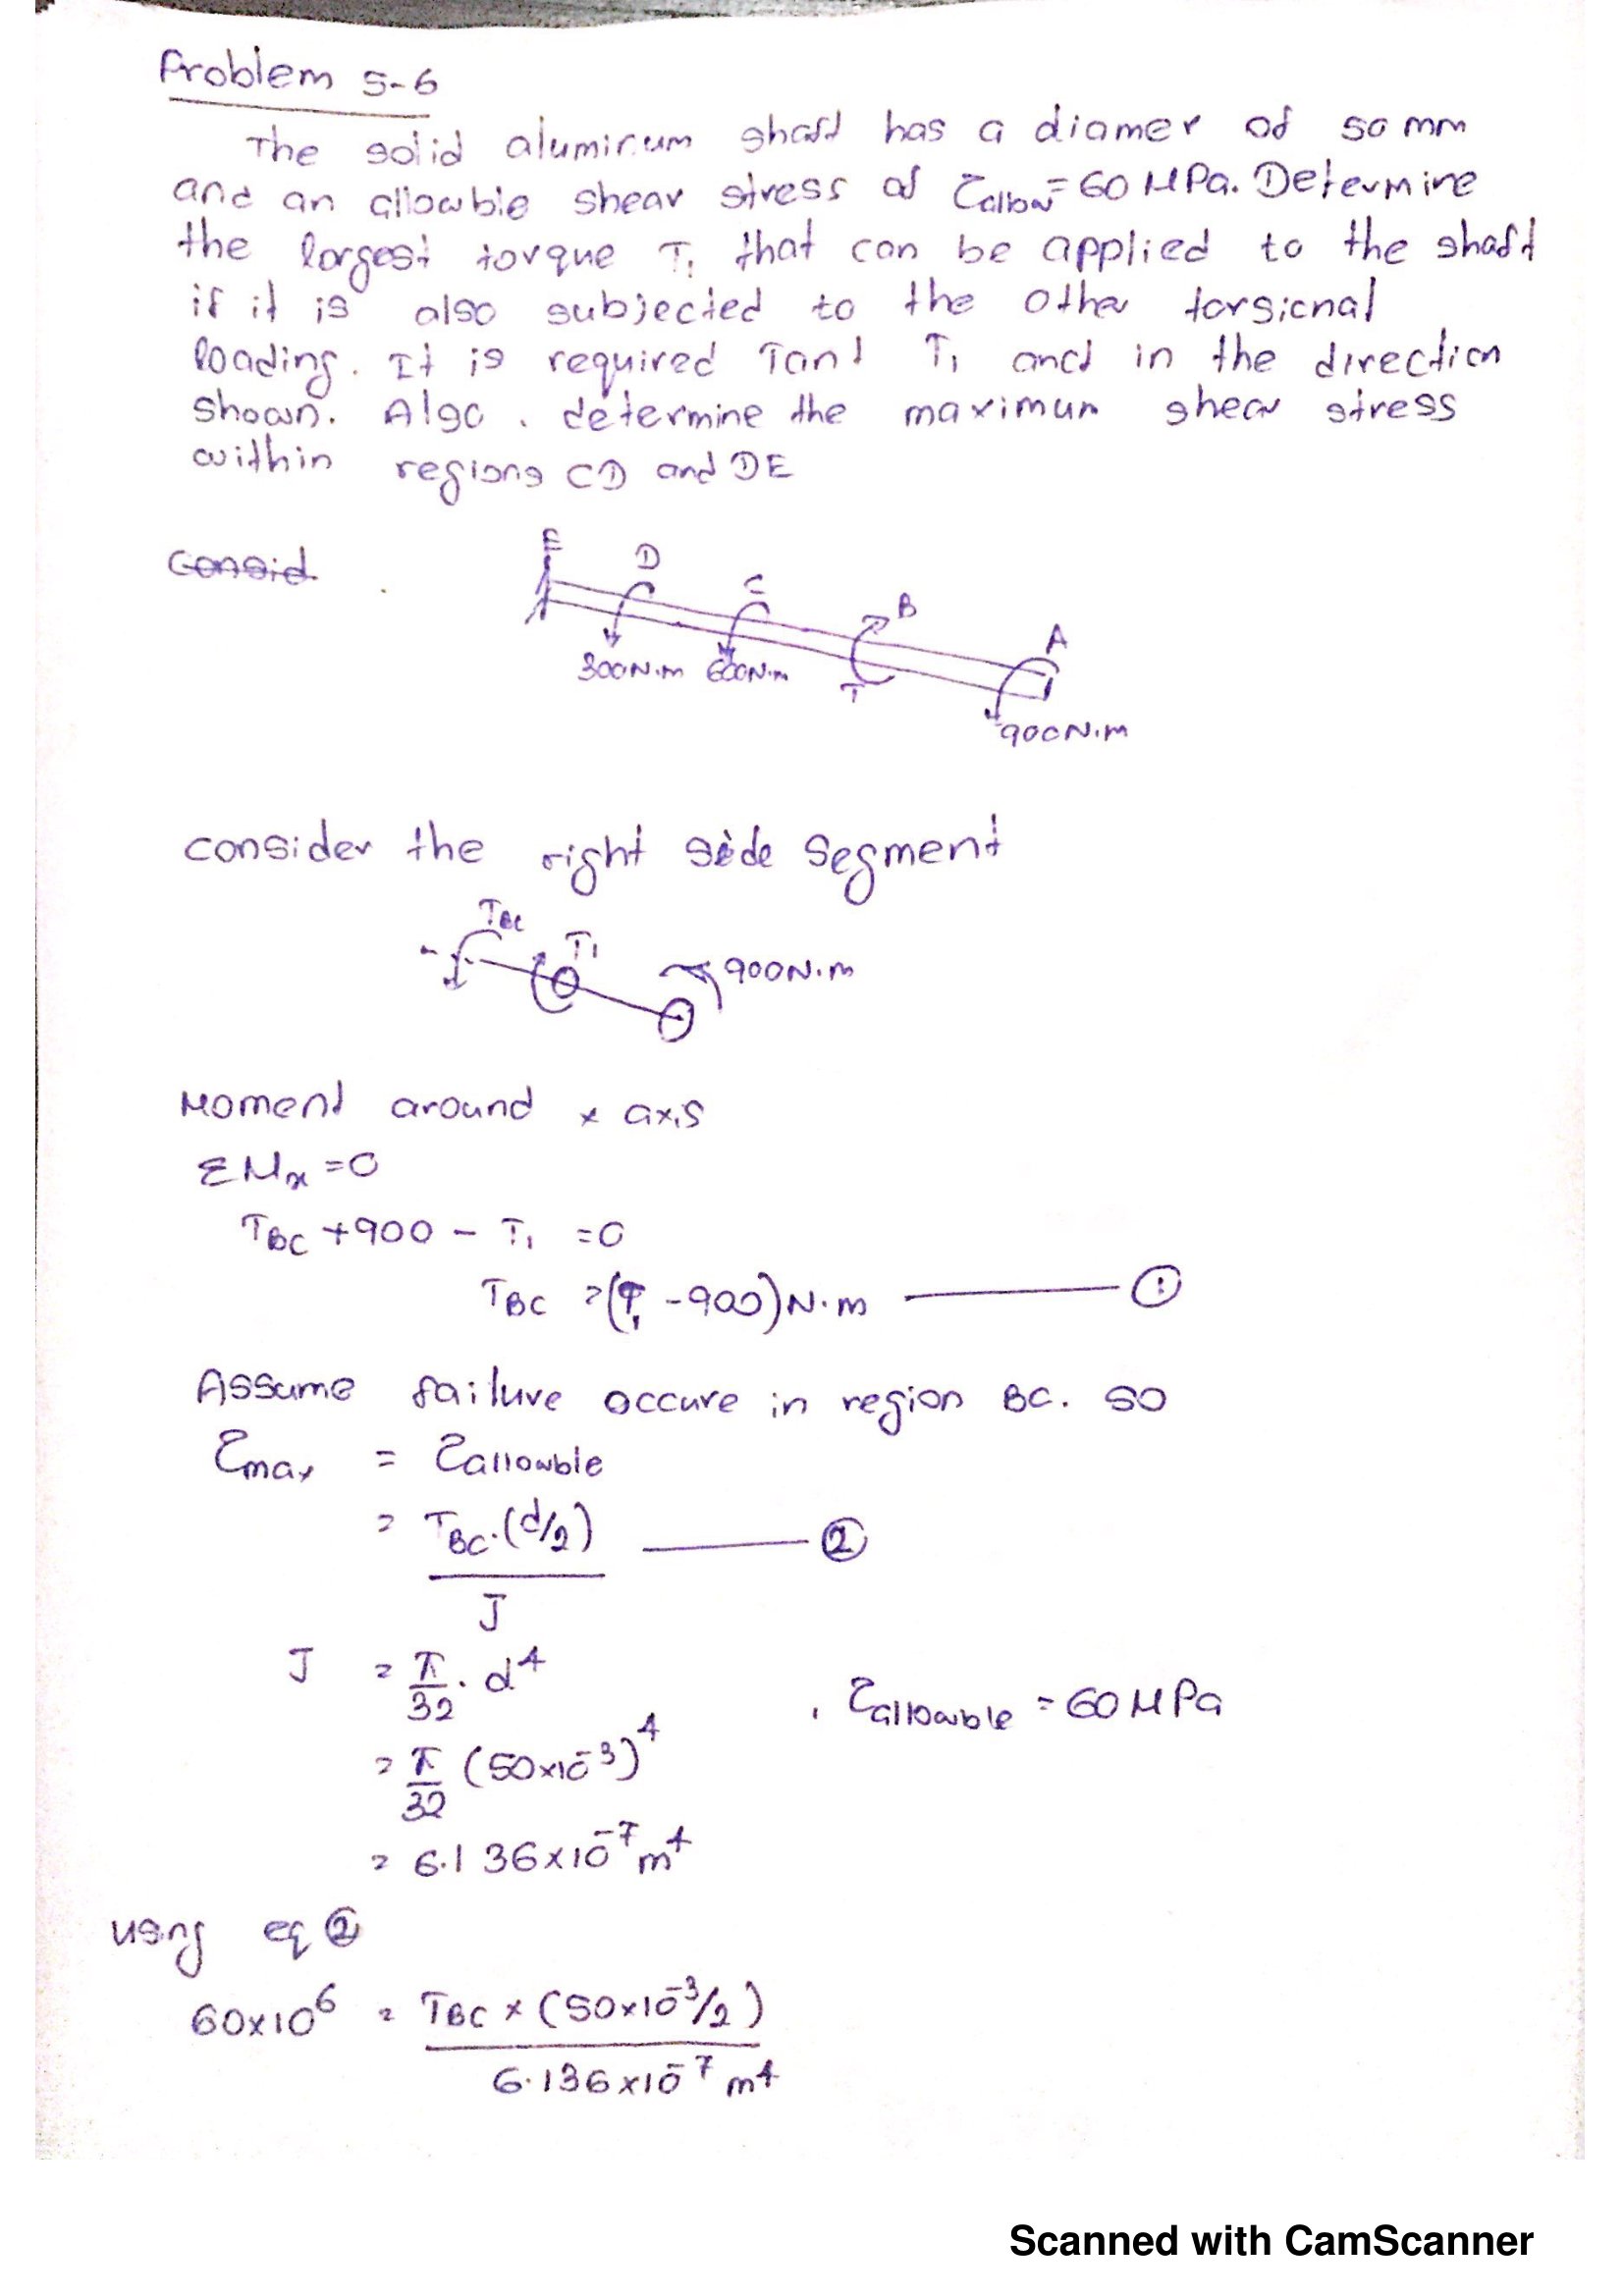 Problem 5-6
The solid aluminum shaft has a diamer of 50 mm
and an allowble shear stress of τallow = 60 MPa. Determine
the largest torque T1 that can be applied to the shaft
if it is also subjected to the other torsional
loading. It is required Tant T1 and in the direction
shown. Also, determine the maximum shear stress
within regions CD and DE
Consid
E
D
C
B
A
300N.m
600N.m
T
900N.m
consider the right side segment
TBC
T1
900N.m
Moment around x axis
ΣMx = 0
TBC + 900 - T1 = 0
TBC = (T1 - 900) N.m ——— ①
Assume failure occure in region BC. so
τmax = τallowble
= TBC.(d/2) / J ——— ②
J = π/32 . d⁴
, τallowble = 60 MPa
= π/32 (50x10⁻³)⁴
= 6.136x10⁻⁷ m⁴
using eq ②
60x10⁶ = TBC x (50x10⁻³/2) / 6.136x10⁻⁷ m⁴
Scanned with CamScanner